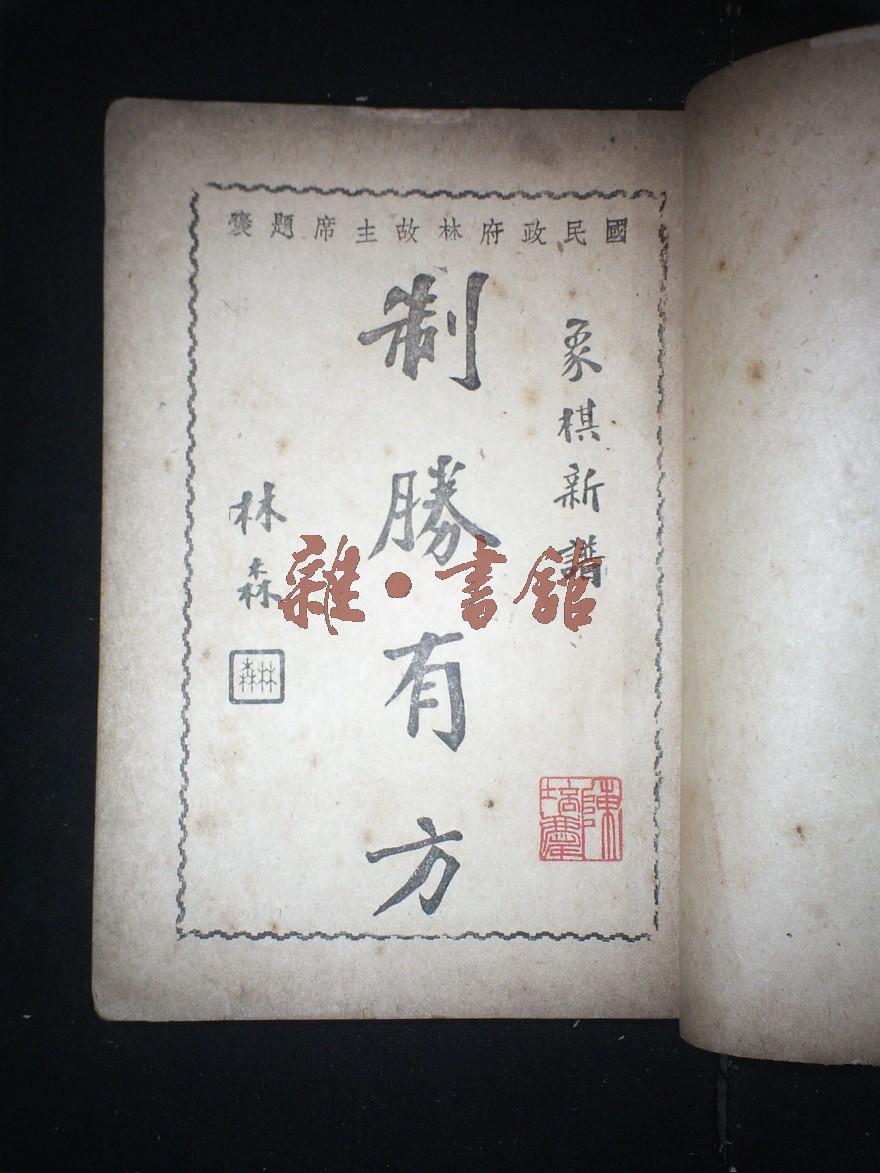 國民政府林故主席題褒
象棋新譜
制勝有方
林森
林森
陳培摩
雜·書館